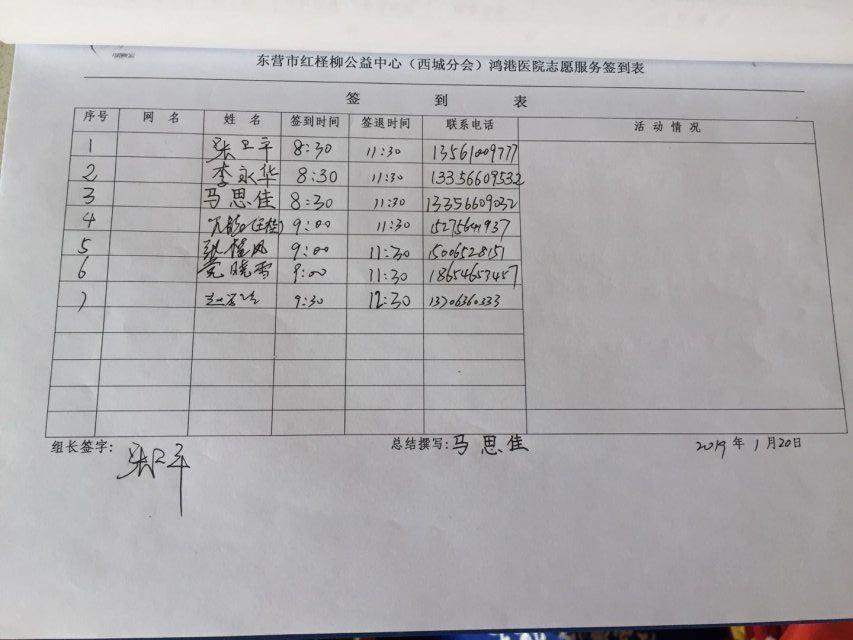 东营市红柽柳公益中心（西城分会）鸿港医院志愿服务签到表
签 到 表
序号 网 名 姓 名 签到时间 签退时间 联系电话 活 动 情 况
1 张卫平 8:30 11:30 13561009777
2 李永华 8:30 11:30 13356609532
3 马思佳 8:30 11:30 13356609032
4 9:00 11:30 15275641937
5 9:00 11:30 15006528151
6 党晓雪 9:00 11:30 18654653457
7 9:30 12:30
组长签字： 张卫平 总结撰写： 马思佳 2019 年 1月20日